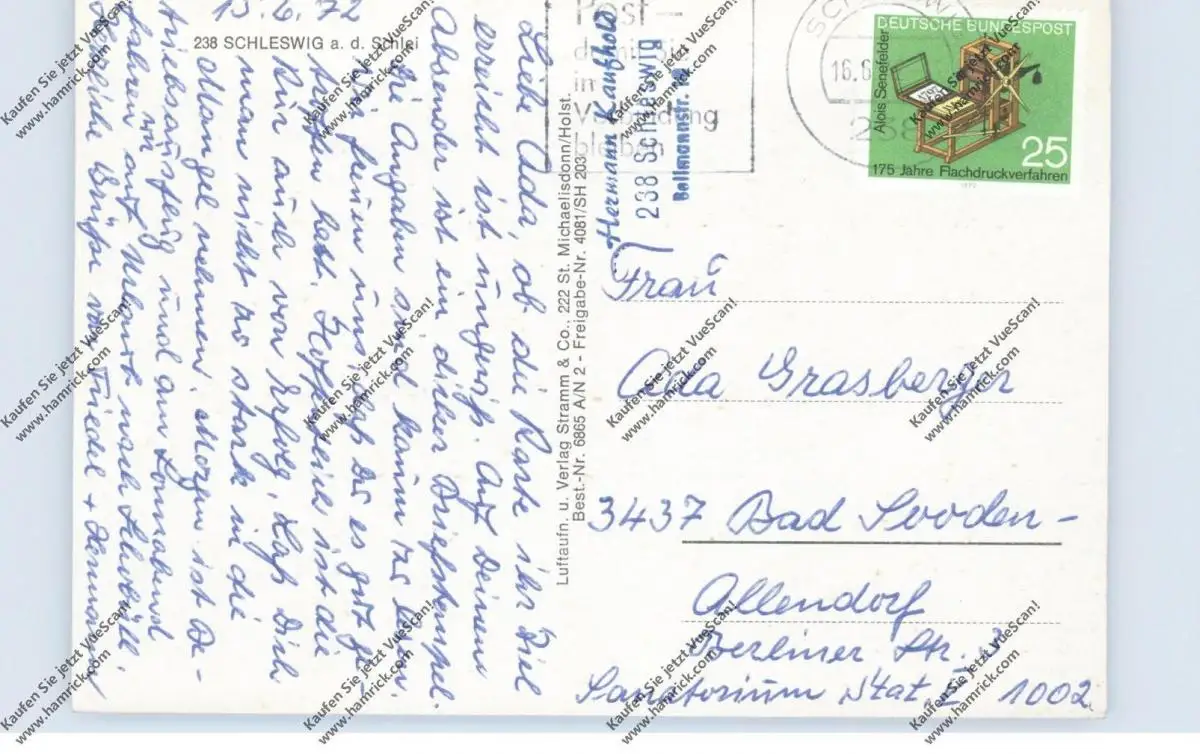 238 SCHLESWIG a. d. Schlei
15.6.72
Liebe Ada, ob die Karte ihr Ziel
erreicht ist ungewiß. Auf Deinem
Absender ist ein dicker Briefstempel.
Die Angaben sind kaum zu lesen.
Wir freuen uns, daß Du es gut ge-
troffen hast. Hoffentlich ist die
Kur auch von Erfolg, daß Dich
man nicht so stark in die
Mangel nehmen. Morgen ist Be-
triebsausflug und am Sonnabend
fahren wir auf Urlaub nach
Herzliche Grüße von Friedel + Hermann
Luftaufn. u. Verlag Stramm & Co., 222 St. Michaelisdonn/Holst.
Best.-Nr. 6865 A/N 2 - Freigabe-Nr. 4081/SH 203
Hermann Langholz
238 Schleswig
Bellmannstr.
Post-
damit Sie
im
Verbindung
bleiben
SCHLESWIG
16.6
238
DEUTSCHE BUNDESPOST
Alois Senefelder
25
175 Jahre Flachdruckverfahren
1972
Frau
Ada Grasberger
3437 Bad Sooden-
Allendorf
Berliner Str. 3
Sanatorium Stat. II 1002
Kaufen Sie jetzt VueScan!
www.hamrick.com